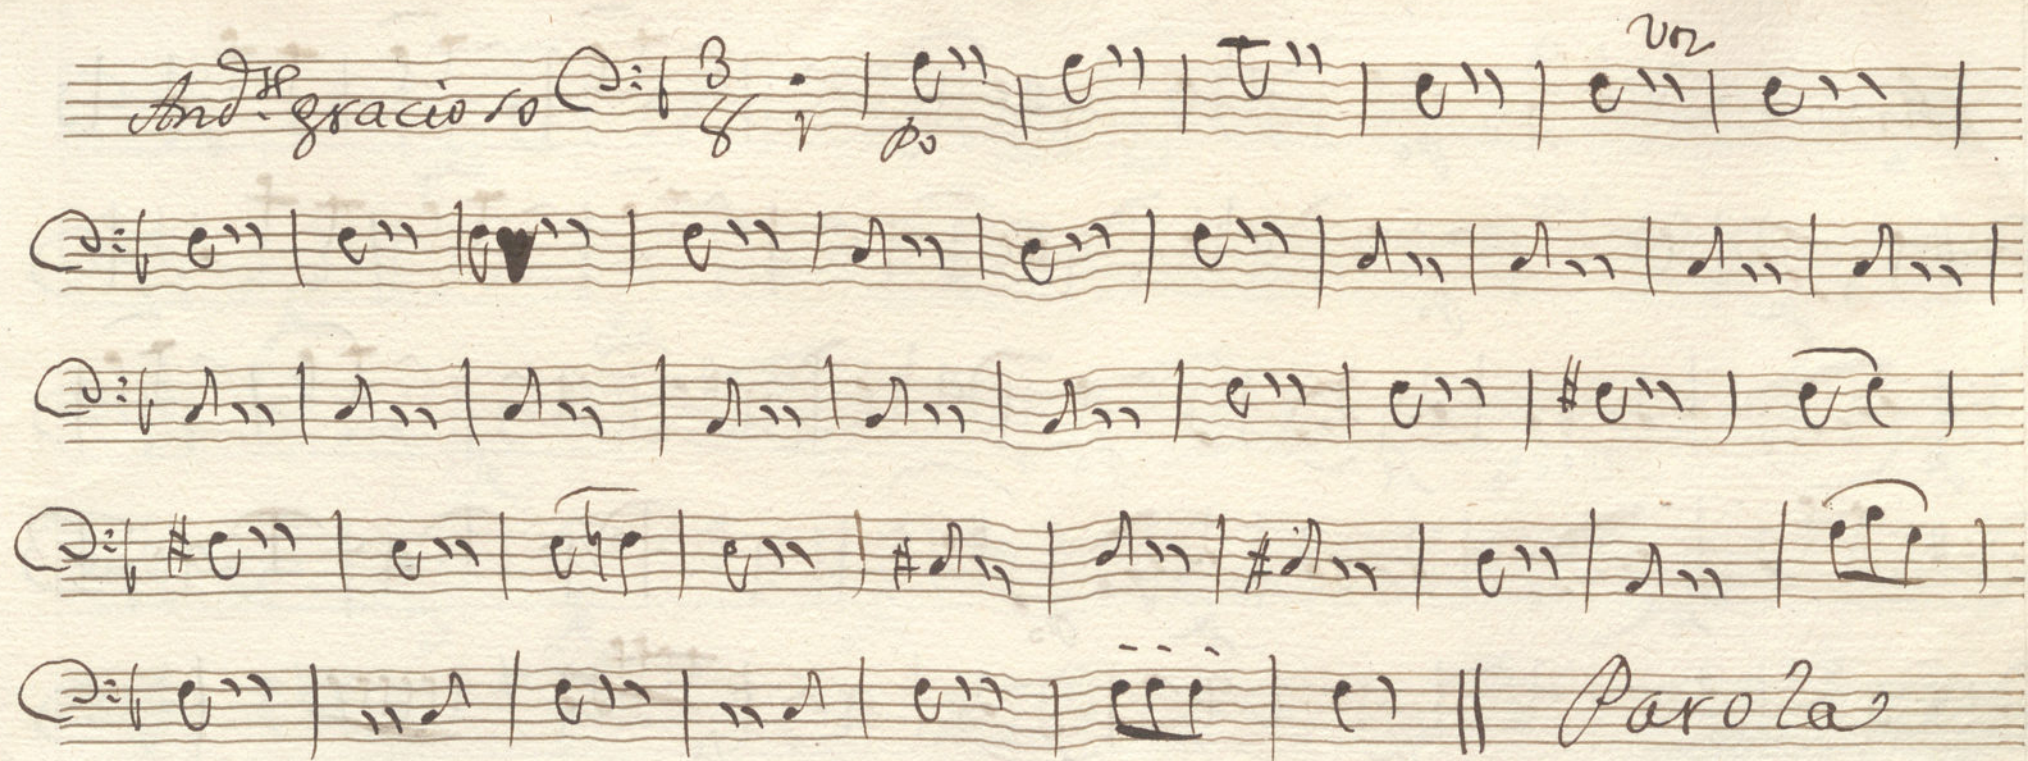 voz
And.te gracioso 3
8 po
Parola